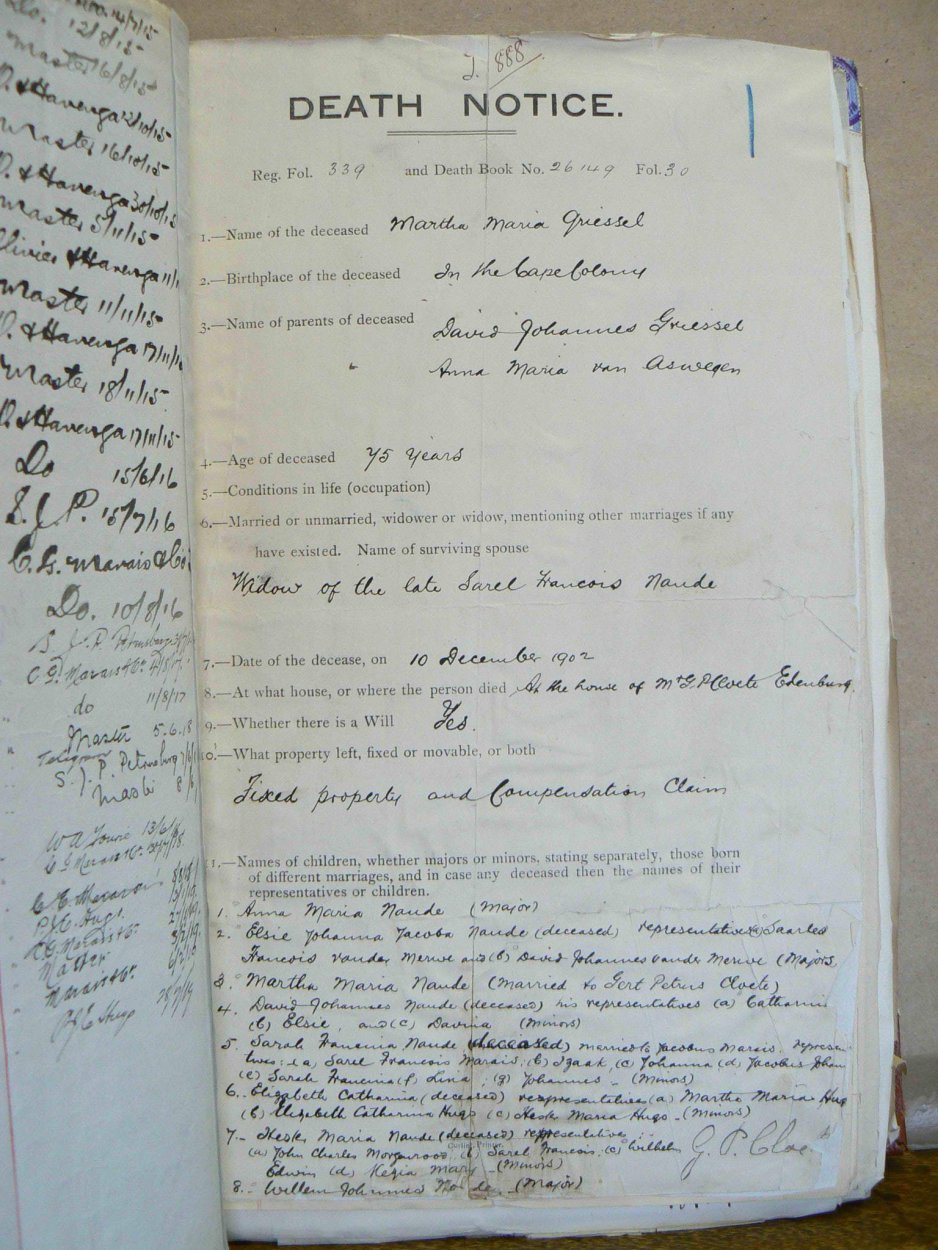 12/8/15
Master 16/8/15
O. & Havenga
Master 16/10/15
O. & Havenga 30/10/15
Master 5/11/15
Olivier & Havenga 11/11
Master 11/11/15
O. & Havenga 17/11/15
Master 18/11/15
O. & Havenga 17/11/15
Do 15/6/16
S.J.P. 15/7/16
C.G. Marais & Co
Do. 10/8/16
S.J.P. Petrusburg
C.G. Marais & Co.
do 11/8/17
Master 5.6.18
Telegram
S.J.P. Petrusburg
Master
W A
C G Marais & Co.
P.J.E. Hugo
C.G. Marais & Co.
Master
Marais & Co.
P J E Hugo
J. 888
DEATH NOTICE.
Reg. Fol. 339 and Death Book No. 26149 Fol. 30
1.—Name of the deceased Martha Maria Griessel
2.—Birthplace of the deceased In the Cape Colony
3.—Name of parents of deceased David Johannes Griessel
" Anna Maria van Aswegen
4.—Age of deceased 75 Years
5.—Conditions in life (occupation)
6.—Married or unmarried, widower or widow, mentioning other marriages if any
have existed. Name of surviving spouse
Widow of the late Sarel Francois Naude
7.—Date of the decease, on 10 December 1902
8.—At what house, or where the person died At the house of Mr G.P. Cloete Edenburg.
9.—Whether there is a Will Yes.
10.—What property left, fixed or movable, or both
Fixed property and Compensation Claim
11.—Names of children, whether majors or minors, stating separately, those born
of different marriages, and in case any deceased then the names of their
representatives or children.
1. Anna Maria Naude (Major)
2. Elsie Johanna Jacoba Naude (deceased) representatives (a) Saarles
Francois vander Merwe and (b) David Johannes vander Merwe (Majors
3. Martha Maria Naude (Married to Gert Petrus Cloete)
4. David Johannes Naude (deceased) his representatives (a) Catharina
(b) Elsie, and (c) Davina (Minors)
5. Sarah Francina Naude (deceased) married to Jacobus Marais. represen-
tives: (a) Sarel Francois Marais, (b) Izaak, (c) Johanna (d) Jacobus Johan
(e) Sarah Francina (f) Lina, (g) Johannes - (Minors)
6. Elizabeth Catharina (deceased) representatives (a) Martha Maria Hugo
(b) Elizabeth Catharina Hugo (c) Hester Maria Hugo - (Minors)
7- Hester Maria Naude (deceased) representatives
(a) John Charles (b) Sarel Francois, (c) Wilhelm
Edwin (d) Kezia Mary - (Minors)
8.- Willem Johannes Naude - (Major)
G. P. Cloete